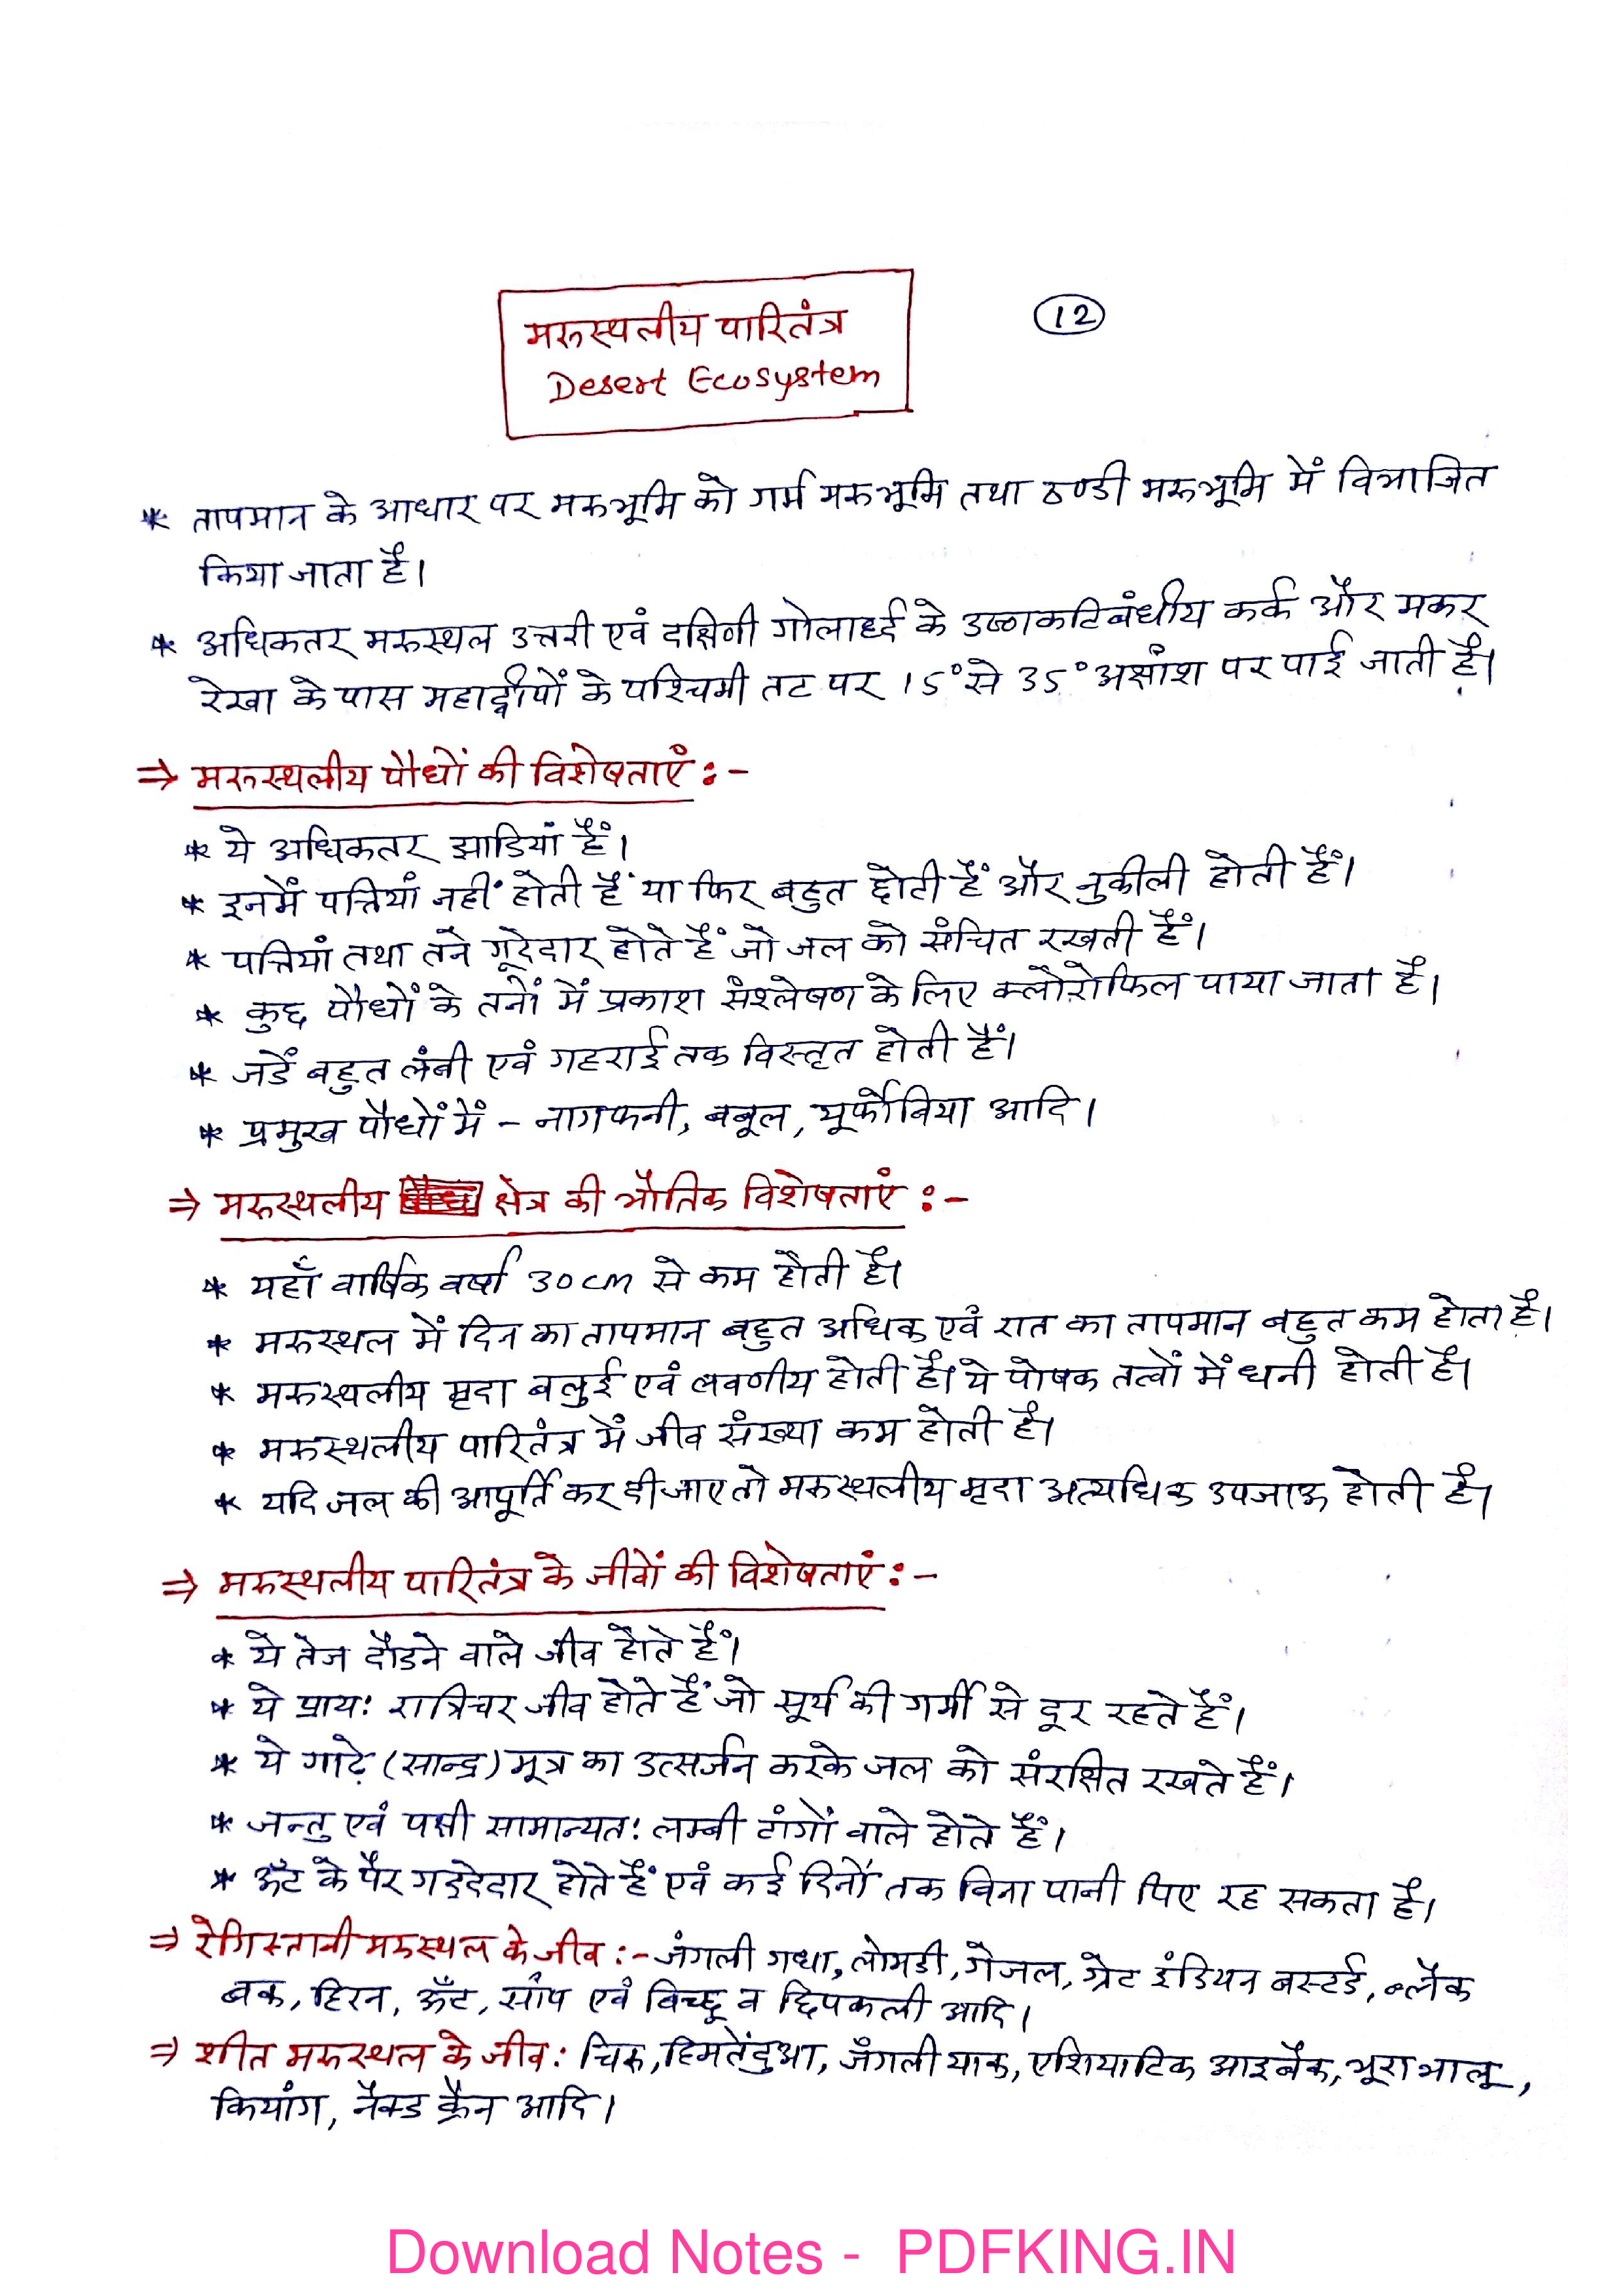 मरुस्थलीय पारितंत्र
Desert Ecosystem
12
* तापमान के आधार पर मरुभूमि को गर्म मरुभूमि तथा ठण्डी मरुभूमि में विभाजित
किया जाता है।
* अधिकतर मरुस्थल उत्तरी एवं दक्षिणी गोलार्ध्द के उष्णकटिबंधीय कर्क और मकर
रेखा के पास महाद्वीपों के पश्चिमी तट पर 15° से 35° अक्षांश पर पाई जाती है।
⇒ मरुस्थलीय पौधों की विशेषताएं :-
* ये अधिकतर झाडियां हैं।
* इनमें पत्तियां नहीं होती हैं या फिर बहुत छोटी हैं और नुकीली होती हैं।
* पत्तियां तथा तने गूदेदार होते हैं जो जल को संचित रखती हैं।
* कुछ पौधों के तनों में प्रकाश संश्लेषण के लिए क्लोरोफिल पाया जाता है।
* जडें बहुत लंबी एवं गहराई तक विस्तृत होती हैं।
* प्रमुख पौधों में - नागफनी, बबूल, यूर्फोबिया आदि।
⇒ मरुस्थलीय क्षेत्र की भौतिक विशेषताएं :-
* यहाँ वार्षिक वर्षा 30 cm से कम होती है।
* मरुस्थल में दिन का तापमान बहुत अधिक एवं रात का तापमान बहुत कम होता है।
* मरुस्थलीय मृदा बलुई एवं लवणीय होती है। ये पोषक तत्वों में धनी होती है।
* मरुस्थलीय पारितंत्र में जीव संख्या कम होती है।
* यदि जल की आपूर्ति कर दी जाए तो मरुस्थलीय मृदा अत्यधिक उपजाऊ होती है।
⇒ मरुस्थलीय पारितंत्र के जीवों की विशेषताएं :-
* ये तेज दौडने वाले जीव होते हैं।
* ये प्रायः रात्रिचर जीव होते हैं जो सूर्य की गर्मी से दूर रहते हैं।
* ये गाढ़े (सान्द्र) मूत्र का उत्सर्जन करके जल को संरक्षित रखते हैं।
* जन्तु एवं पक्षी सामान्यतः लम्बी टांगों वाले होते हैं।
* ऊँट के पैर गद्देदार होते हैं एवं कई दिनों तक बिना पानी पिए रह सकता है।
⇒ रेगिस्तानी मरुस्थल के जीव :- जंगली गधा, लोमडी, गैजल, ग्रेट इंडियन बस्टर्ड, ब्लैक
बक, हिरन, ऊँट, साँप एवं बिच्छू व छिपकली आदि।
⇒ शीत मरुस्थल के जीव : चिरु, हिमतेंदुआ, जँगली याक, एशियाटिक आइबैक, भूरा भालू,
कियांग, नैक्ड क्रैन आदि।
Download Notes - PDFKING.IN